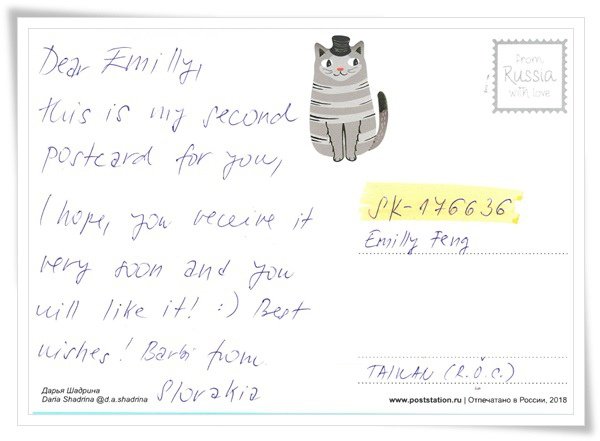 Dear Emilly,
this is my second
postcard for you,
I hope, you receive it
very soon and you
will like it! :) Best
wishes! Barbi from
Slovakia
from
Russia
with love
SK-176636
Emilly Feng
TAIWAN (R.O.C.)
Дарья Шадрина
Daria Shadrina @d.a.shadrina
www.poststation.ru | Отпечатано в России, 2018